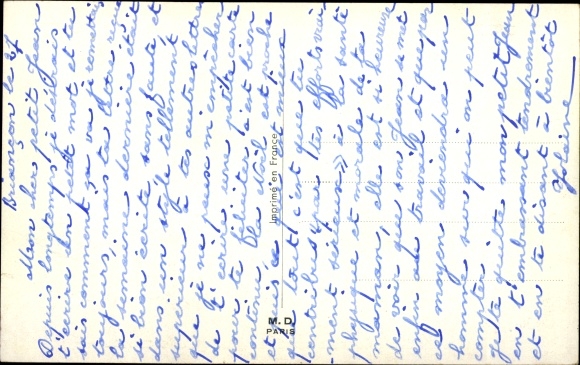 Briançon le 27
Mon cher petit Jean
Depuis longtemps je désirais
t'écrire un petit mot et tu
sais comment ça va je remets
toujours, mais ta lettre de
la semaine dernière était
si bien écrite sans faute et
dans un style tellement
supérieur à tes autres lettres
que je ne peux m'empêcher
de t'écrire une petite carte
pour te féliciter c'est bien
continue la était proche
et mieux
que tout c'est que tu
contribues par tes efforts vrai
-ment sérieux à la santé
physique et morale de ta
maman, elle est si heureuse
de voir que son Jean se met
enfin au travail et que par
ce moyen deviendra un
homme sur qui on peut
compter.
Je te quitte mon petit Jean
en t'embrassant tendrement
et en te disant à bientôt
Yolaine
Imprimé en France
M.D.
PARIS